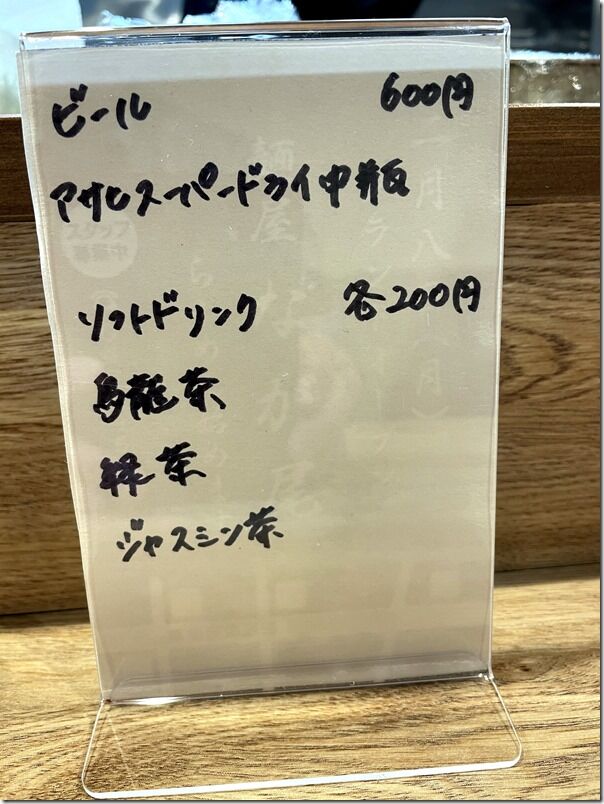 ビール 600円
アサヒスーパードライ中瓶
ソフトドリンク 各200円
烏龍茶
緑茶
ジャスミン茶